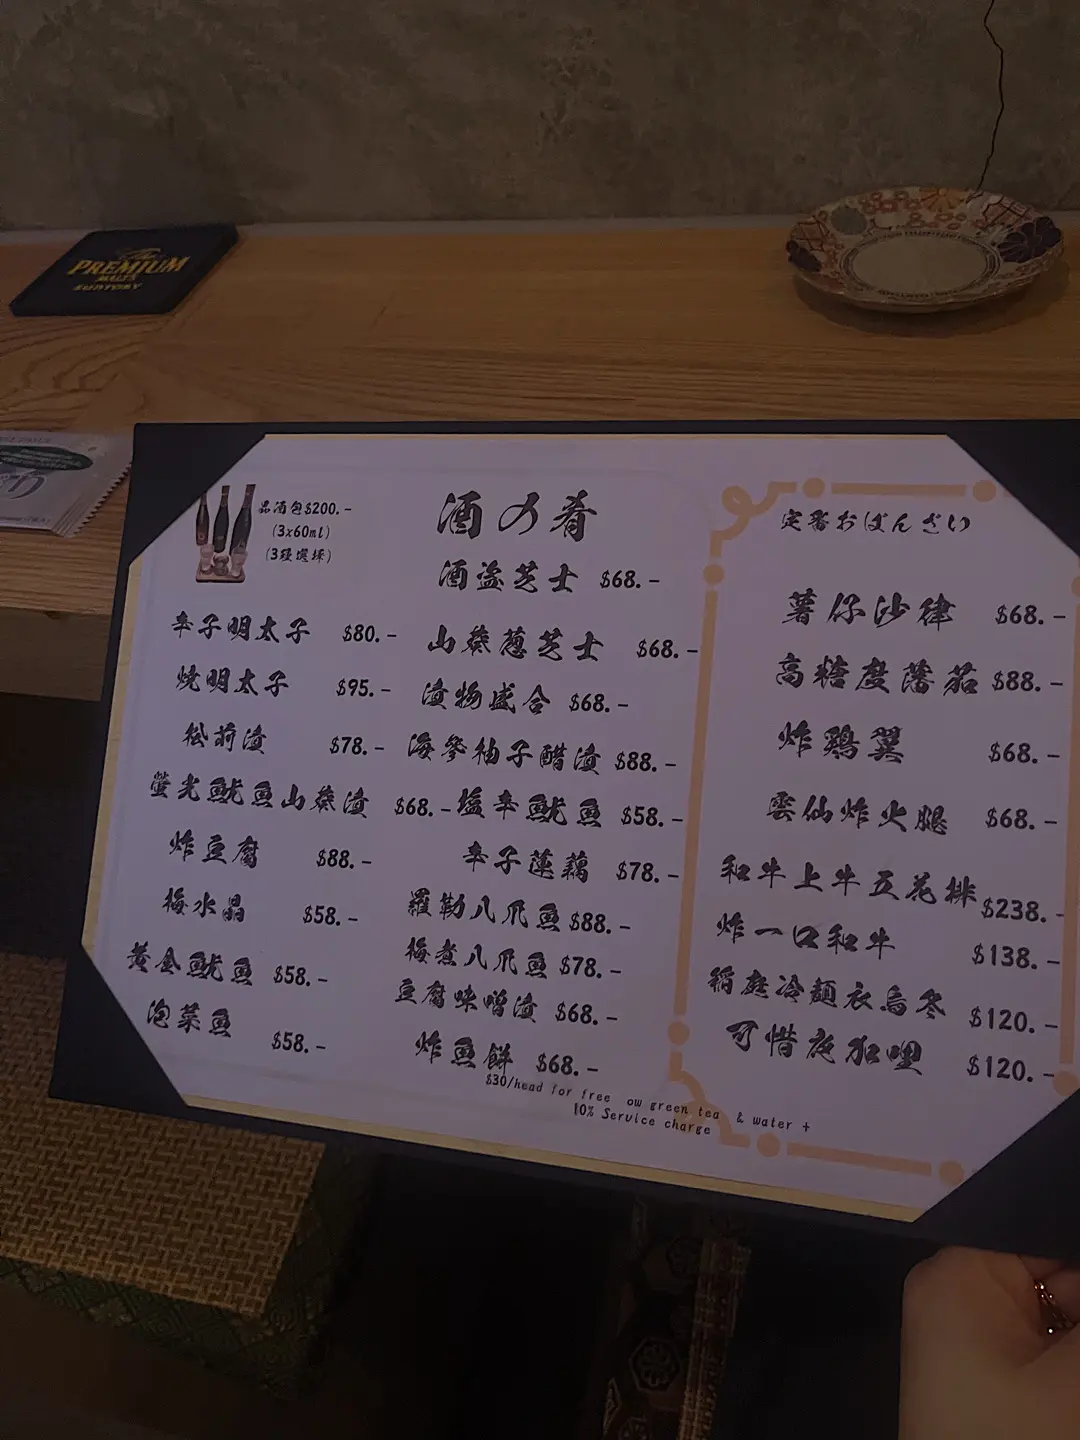 The
PREMIUM
MALT'S
SUNTORY
品酒包$200.-
(3x60ml)
(3種選擇)
酒の肴
酒盗芝士 $68.-
辛子明太子 $80.-
燒明太子 $95.-
松前漬 $78.-
螢光魷魚山葵漬 $68.-
炸豆腐 $88.-
梅水晶 $58.-
黃金魷魚 $58.-
泡菜魚 $58.-
山葵蔥芝士 $68.-
漬物盛合 $68.-
海參柚子醋漬 $88.-
塩辛魷魚 $58.-
辛子蓮藕 $78.-
羅勒八爪魚 $88.-
梅煮八爪魚 $78.-
豆腐味噌漬 $68.-
炸魚餅 $68.-
$30/head for free ow green tea & water +
10% Service charge
定番おばんざい
薯仔沙律 $68.-
高糖度蕃茄 $88.-
炸鷄翼 $68.-
雲仙炸火腿 $68.-
和牛上牛五花排 $238.-
炸一口和牛 $138.-
稲庭冷麵衣烏冬 $120.-
可惜夜咖喱 $120.-